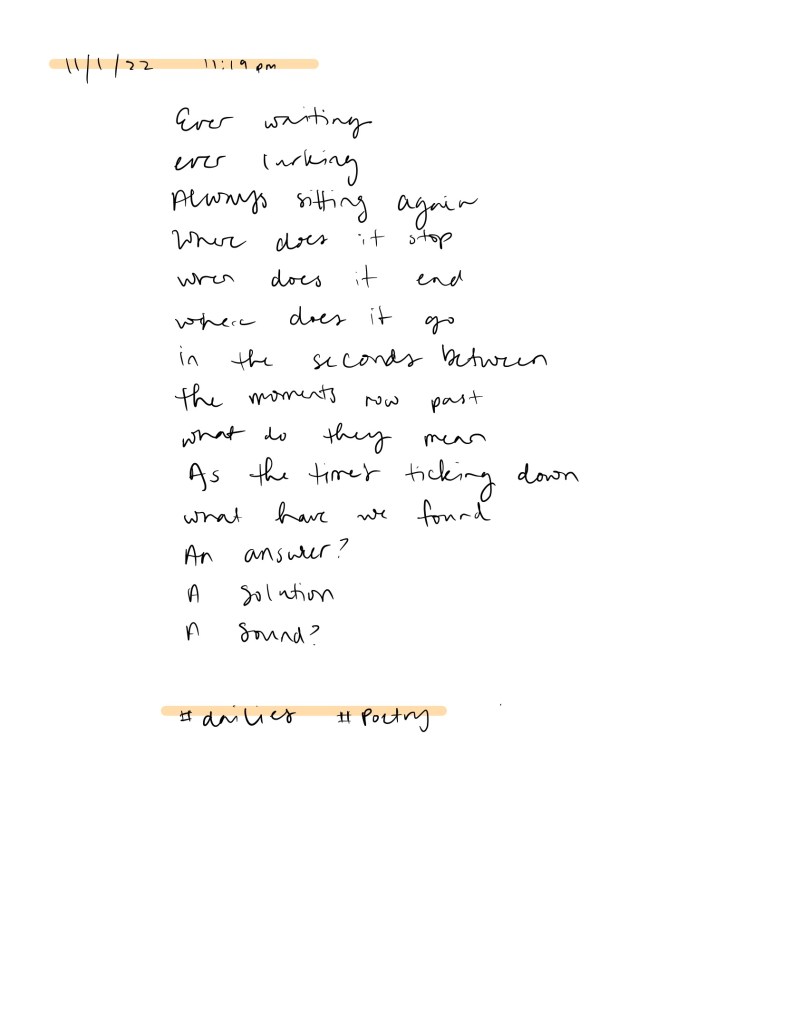 11/1/22 11:19 pm
Ever waiting
ever lurking
Always sitting again
Where does it stop
when does it end
where does it go
in the seconds between
the moments now past
what do they mean
As the times ticking down
what have we found
An answer?
A solution
A sound?
#dailies #Poetry